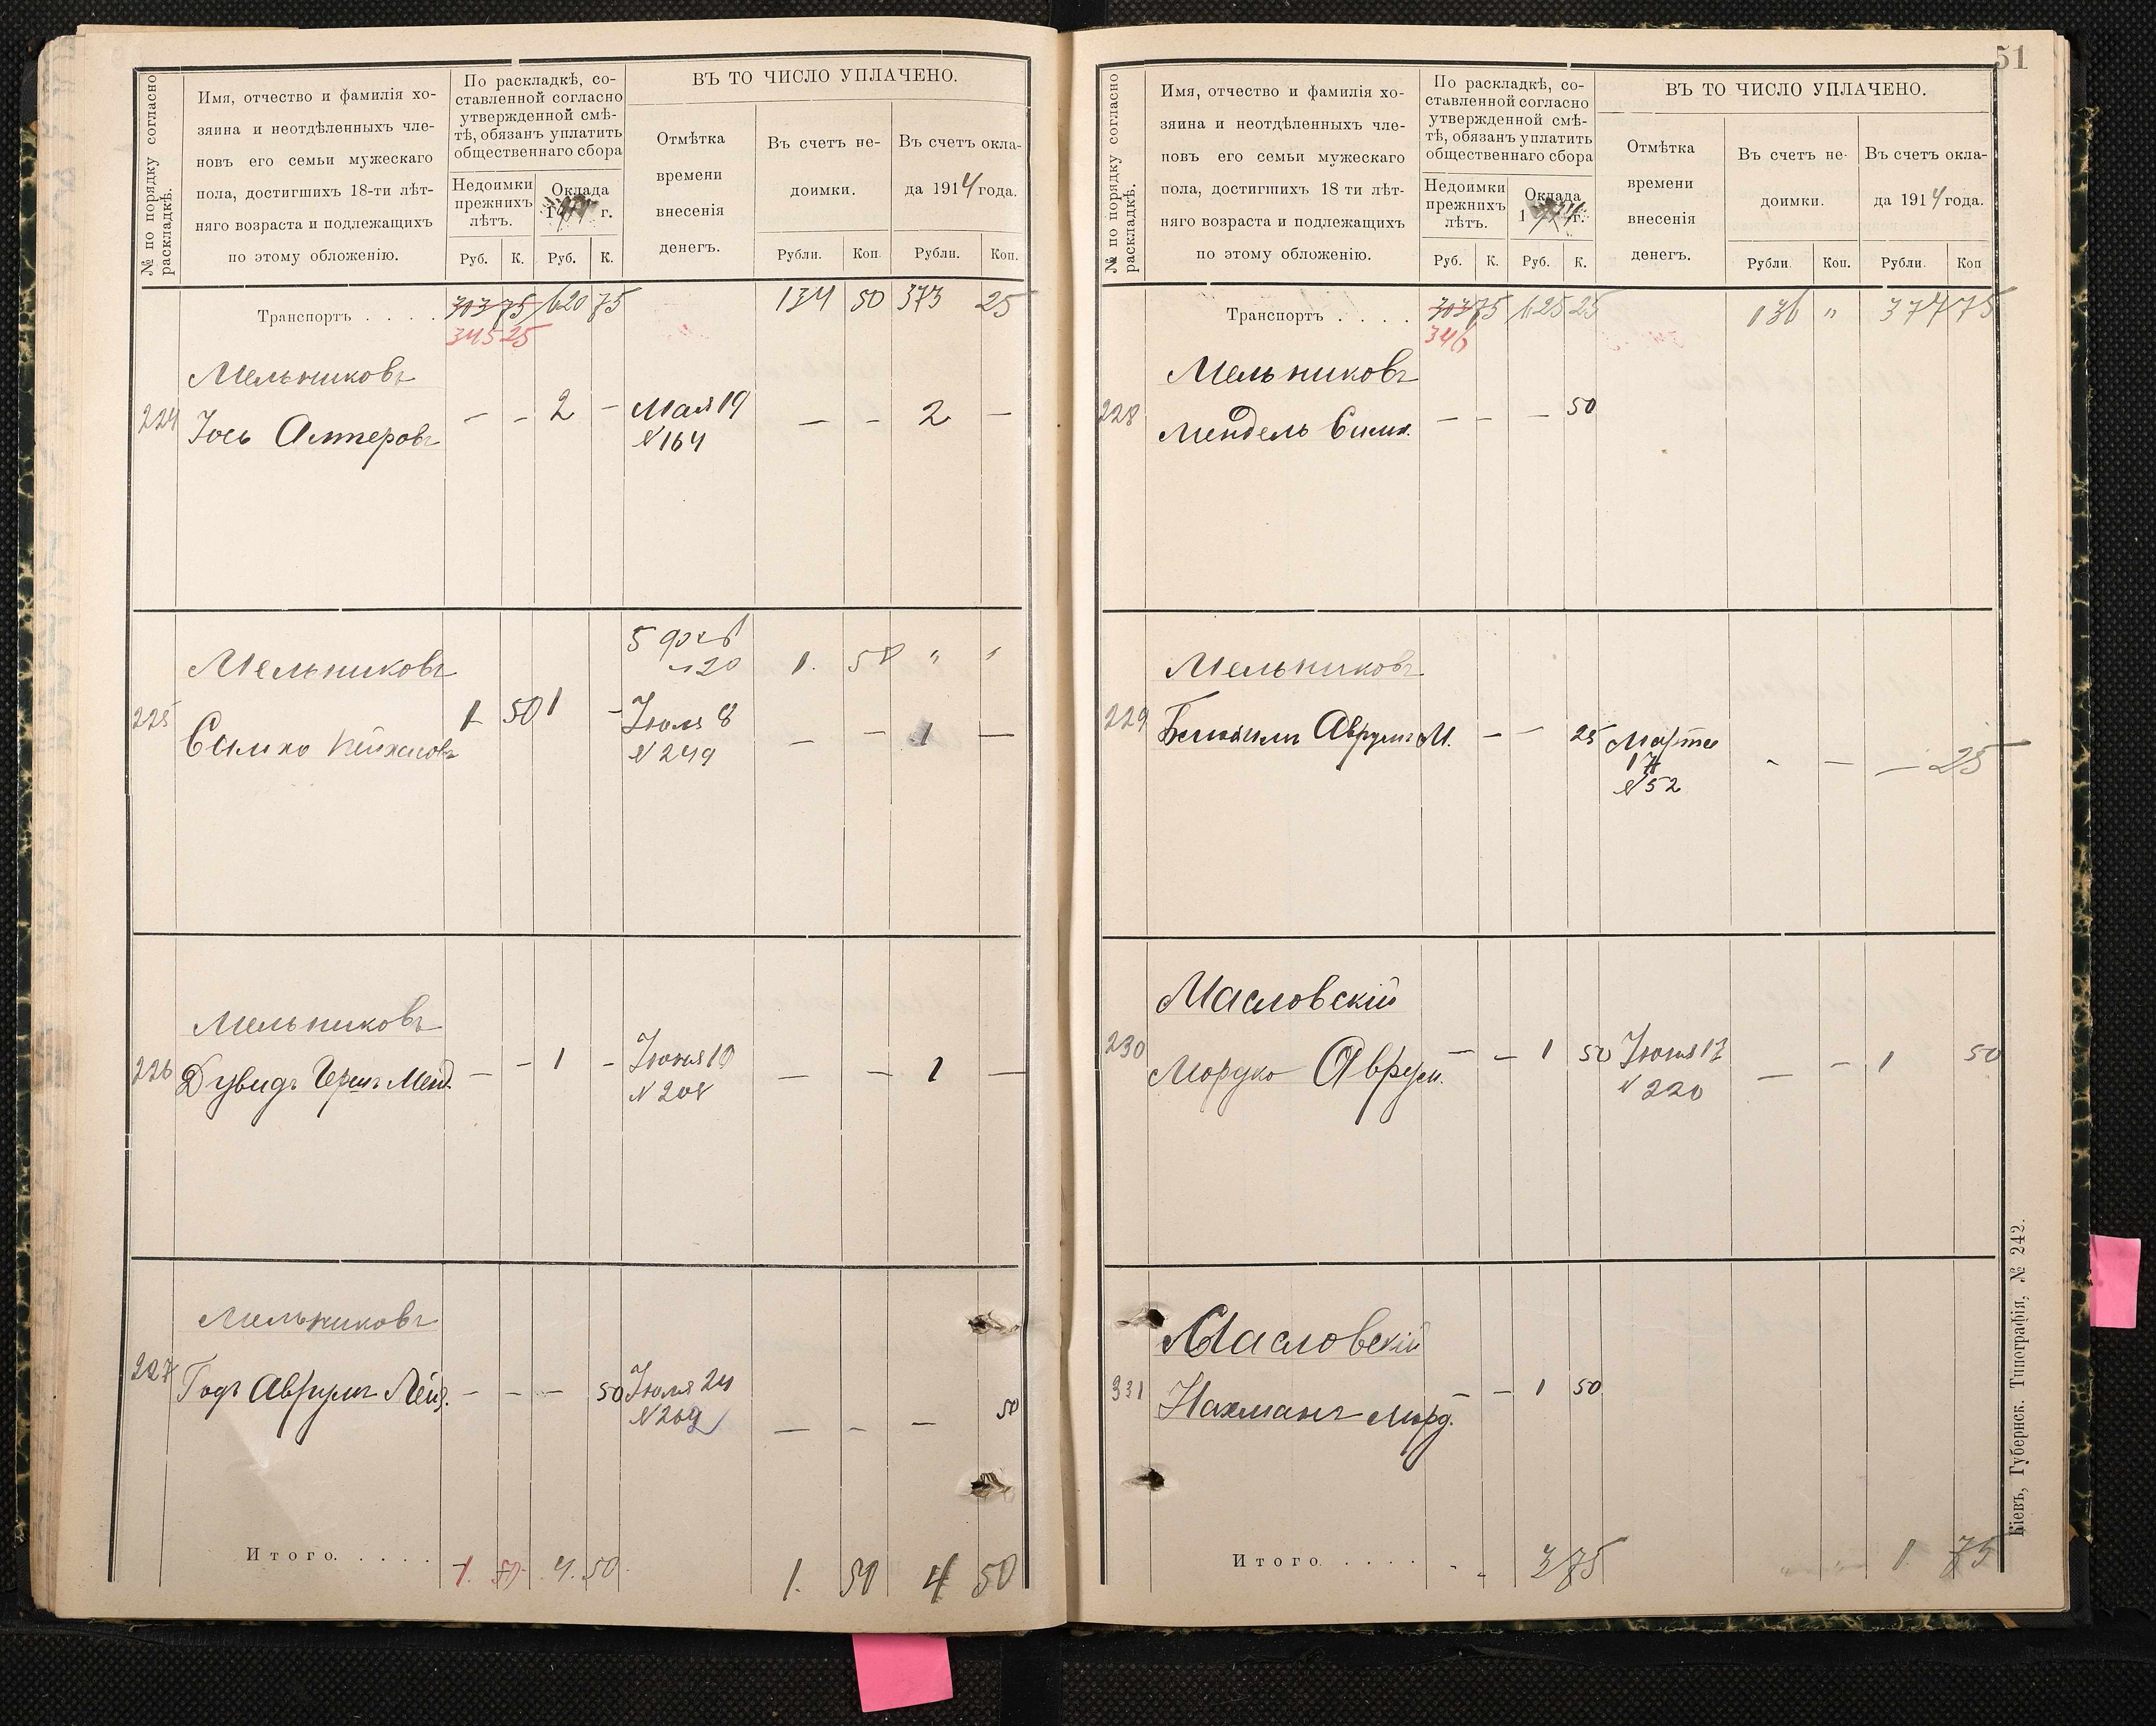 № по порядку согласно
раскладкѣ.
Имя, отчество и фамилія хо-
зяина и неотдѣленныхъ чле-
новъ его семьи мужескаго
пола, достигшихъ 18-ти лѣт-
няго возраста и подлежащихъ
по этому обложенію.
По раскладкѣ, со-
ставленной согласно
утвержденной смѣ-
тѣ, обязанъ уплатить
общественнаго сбора
Недоимки
прежнихъ
лѣтъ.
Оклада
1914 г.
Руб. К. Руб. К.
ВЪ ТО ЧИСЛО УПЛАЧЕНО.
Отмѣтка
времени
внесенія
денегъ.
Въ счетъ не-
доимки.
Въ счетъ окла-
да 1914 года.
Рубли. Коп. Рубли. Коп.
Транспортъ . . . . 303 75 1620 75 134 50 373 25
345 25
Мельниковъ
224 Іось Алтеровъ — — 2 — Мая 19 — — 2 —
№ 164
5 1. 50 " "
№ 20
Мельниковъ
225 Симха 1 50 1 — Іюля 8 — — 1 —
№ 249
Мельниковъ
226 Дувидъ Герш. Менд. — — 1 — Іюня 10 — — 1 —
№ 208
Мельниковъ
227 Годъ Аврумъ Лейз. — — — 50 Іюля 24 — — — 50
№ 269
Итого. . . . . 1. 50 4. 50 1. 50 4 50
51
№ по порядку согласно
раскладкѣ.
Имя, отчество и фамилія хо-
зяина и неотдѣленныхъ чле-
новъ его семьи мужескаго
пола, достигшихъ 18 ти лѣт-
няго возраста и подлежащихъ
по этому обложенію.
По раскладкѣ, со-
ставленной согласно
утвержденной смѣ-
тѣ, обязанъ уплатить
общественнаго сбора
Недоимки
прежнихъ
лѣтъ.
Оклада
1914 г.
Руб. К. Руб. К.
ВЪ ТО ЧИСЛО УПЛАЧЕНО.
Отмѣтка
времени
внесенія
денегъ.
Въ счетъ не-
доимки.
Въ счетъ окла-
да 1914 года.
Рубли. Коп. Рубли. Коп
Транспортъ . . . . 303 75 1625 25 136 " 377 75
346
Мельниковъ
228 Мендель Симх. — — — 50
Мельниковъ
229 Аврумъ М. — — 25 Марта - — — 25
17
№ 52
Масловскій
230 Мордко Аврум. — — 1 50 Іюня 17 — — 1 50
№ 220
Масловскій
231 Нахманъ Морд. — — 1 50
Итого. . . . . - - 3 75 1 75
Кіевъ, Губернск. Типографія, № 242.